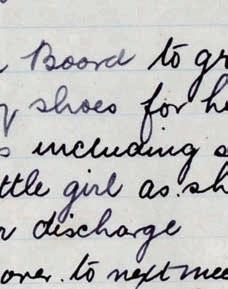 Board to gr
y shoes for he
s including a
ttle girl as sh
r discharge
over. to next mee